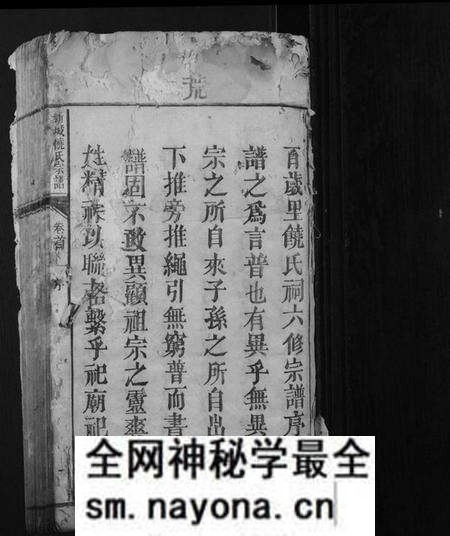 荒
百歲里饒氏祠六修宗譜序
譜之爲言普也有異乎無異
宗之所自來子孫之所自出
下推旁推繩引無窮普而書
譜固不敢異顧祖宗之靈爽
姓精祿以聯格繫乎祀廟祀
新城饒氏宗譜
卷首
序
全网神秘学最全
sm.nayona.cn